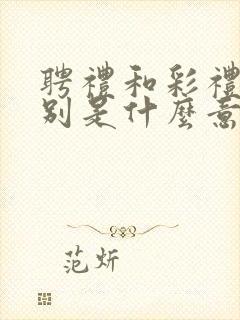 聘禮和彩禮
別是什麼意
范炘